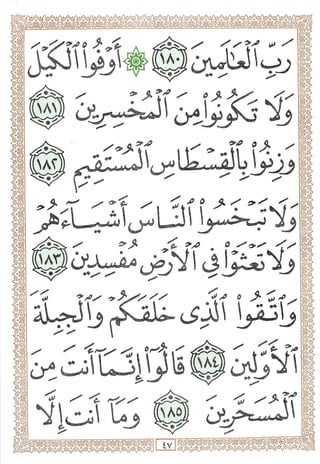 رَبِّ ٱلْعَٰلَمِينَ ١٨٠ ۞ أَوْفُوا۟ ٱلْكَيْلَ
وَلَا تَكُونُوا۟ مِنَ ٱلْمُخْسِرِينَ ١٨١
وَزِنُوا۟ بِٱلْقِسْطَاسِ ٱلْمُسْتَقِيمِ ١٨٢
وَلَا تَبْخَسُوا۟ ٱلنَّاسَ أَشْيَآءَهُمْ
وَلَا تَعْثَوْا۟ فِى ٱلْأَرْضِ مُفْسِدِينَ ١٨٣
وَٱتَّقُوا۟ ٱلَّذِى خَلَقَكُمْ وَٱلْجِبِلَّةَ
ٱلْأَوَّلِينَ ١٨٤ قَالُوٓا۟ إِنَّمَآ أَنتَ مِنَ
ٱلْمُسَحَّرِينَ ١٨٥ وَمَآ أَنتَ إِلَّا
٤٧